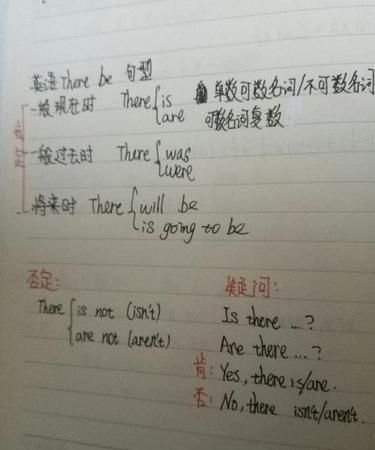 英语 There be 句型
肯定
一般现在时 There { is 单数可数名词/不可数名词
are 可数名词复数
一般过去时 There { was
were
将来时 There { will be
is going to be
否定:
There { is not (isn't)
are not (aren't)
疑问:
Is there ...?
Are there ...?
肯: Yes, there is/are.
否: No, there isn't/aren't.